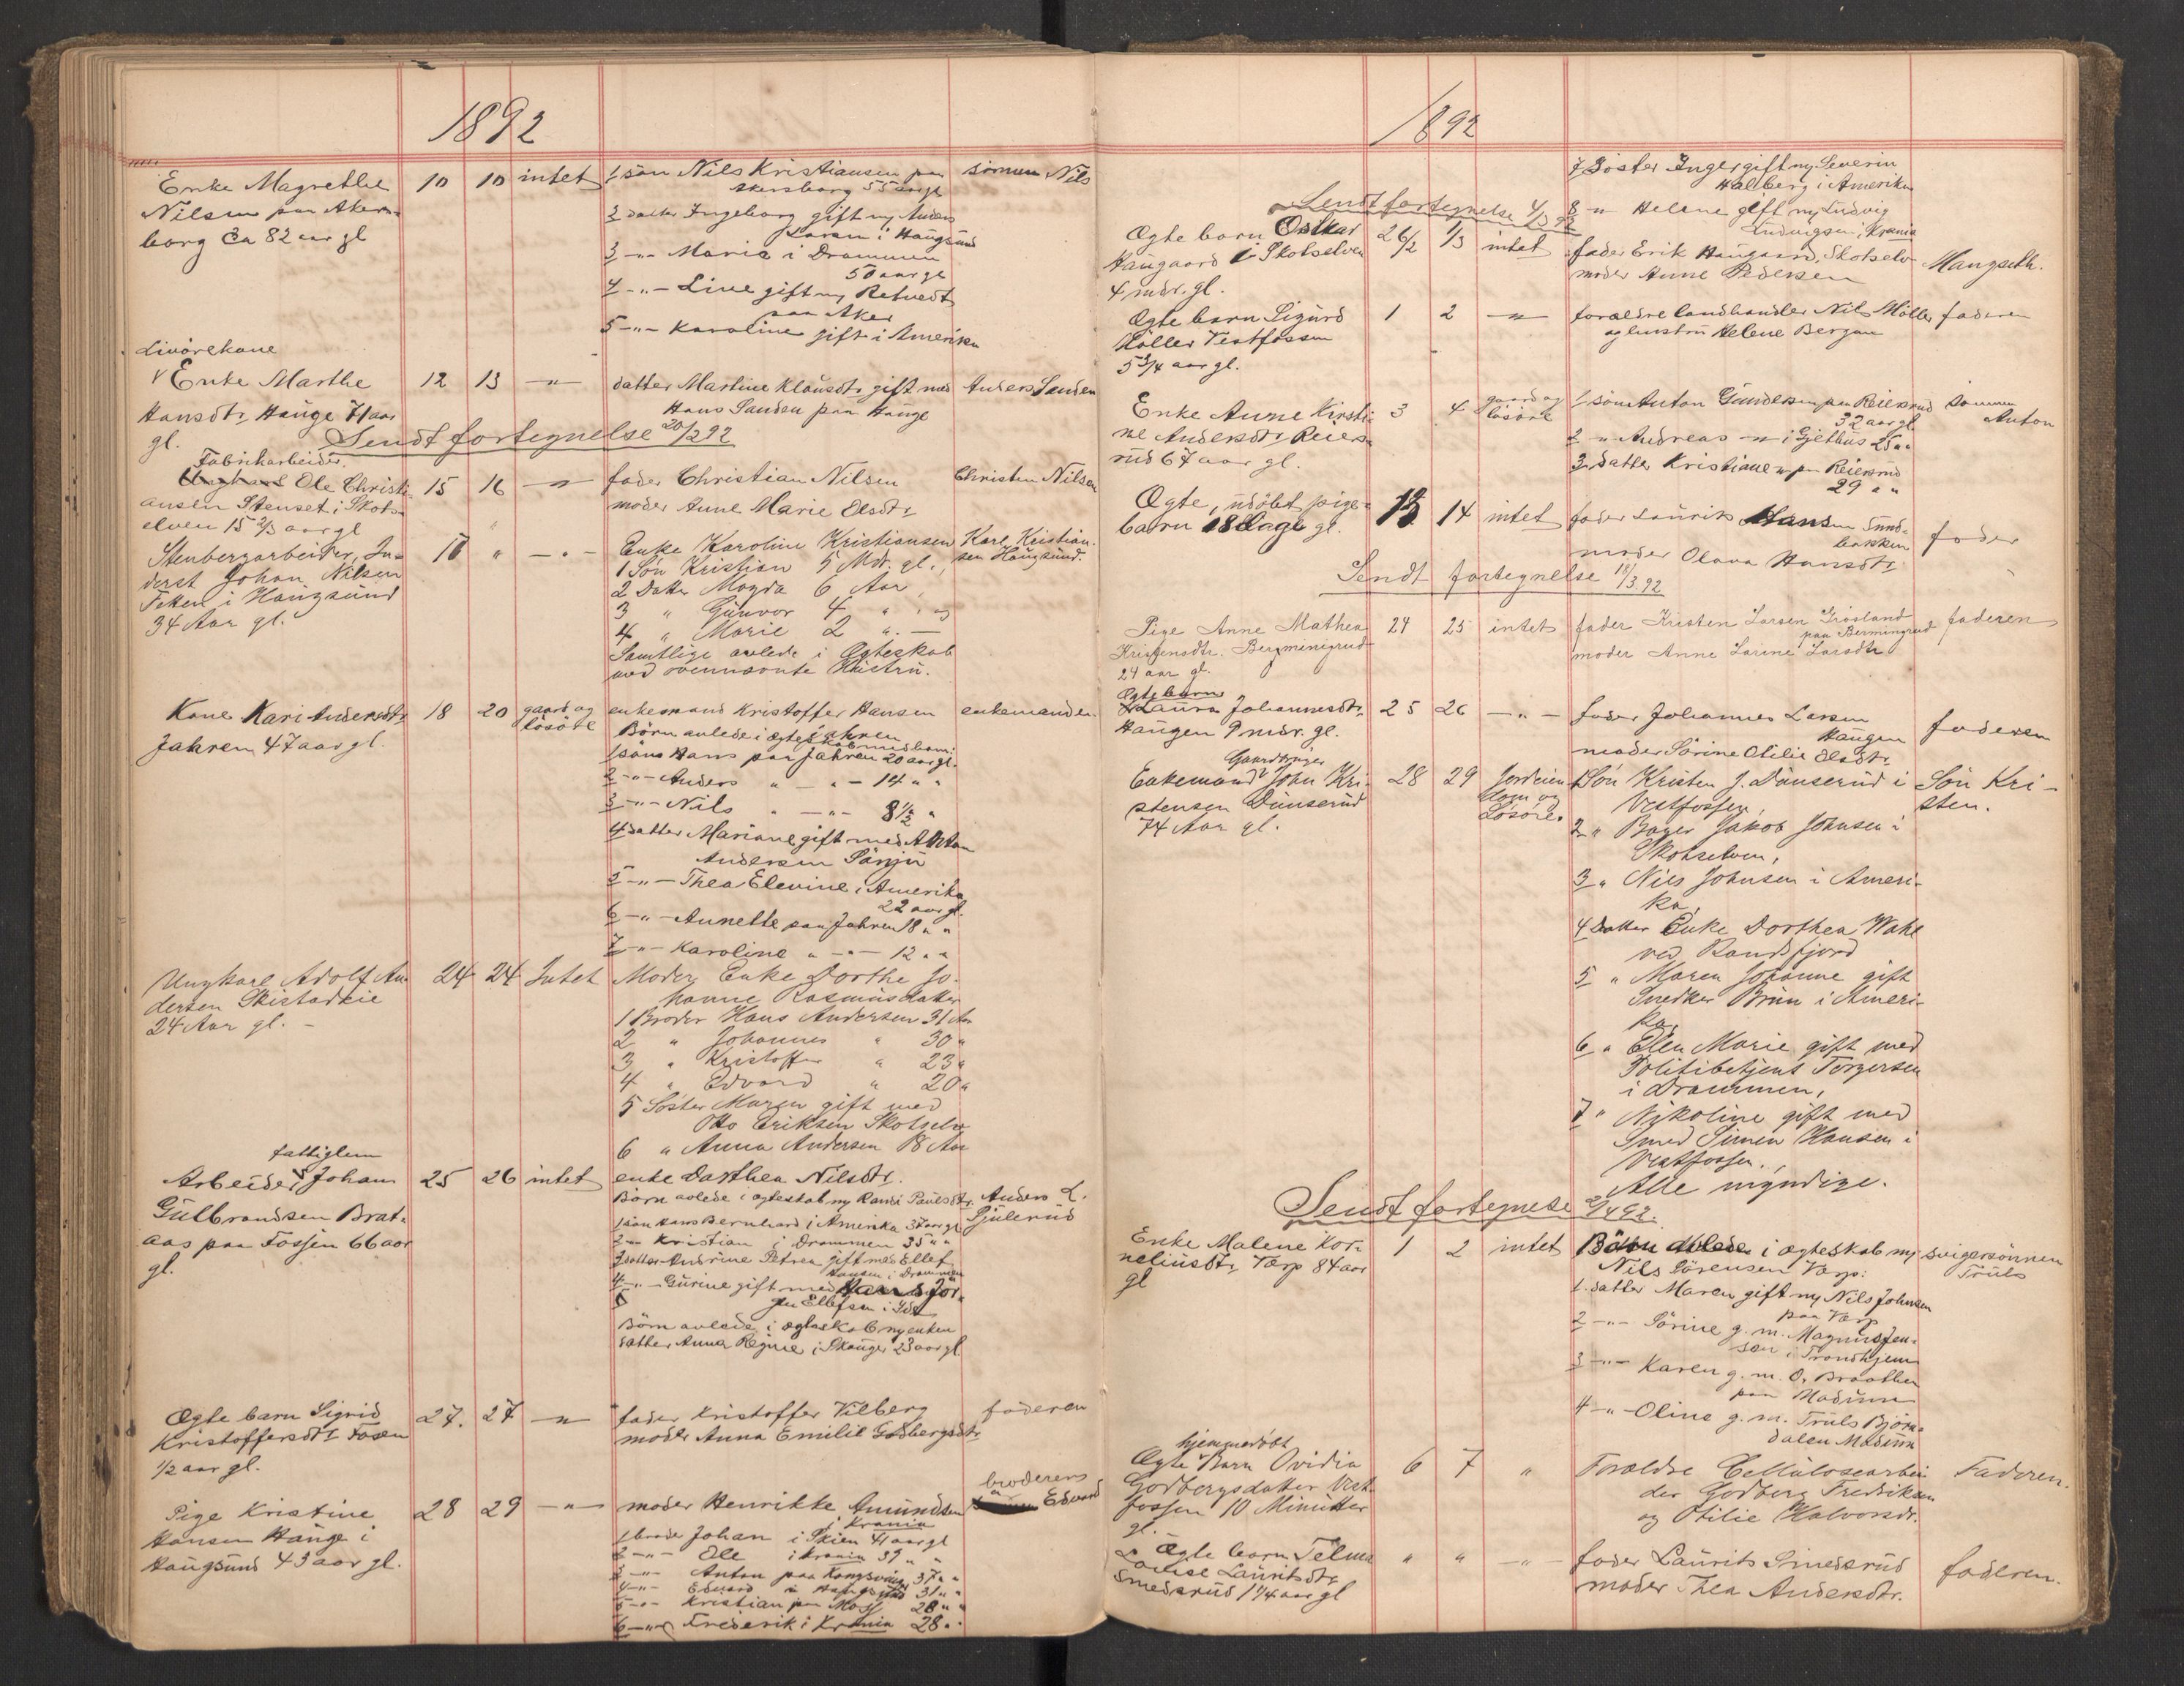 1892
Enke Magrethe 10 10 intet 1 sön Nils Kristiansen paa sönnen Nils
Nilsen paa Akers- Akersborg 55 aar gl
borg Ca 82 aar gl 2 datter Ingeborg gift m/ Anders
Larsen i Haugsund
3 -"- Maria i Drammen
50 aar gl
4 -"- Live gift m/ Retvedt
paa Aker
5 -"- Karoline gift i Amerika
Livörekone
Enke Marthe 12 13 -"- datter Martine Klausdtr gift med Anders Sanden
Hansdtr Hauge 71 aar Hans Sanden paa Hauge
gl.
Sendt fortegnelse 20/2 92
Fabrikarbeider
Ungkarl Ole Christi- 15 16 -"- fader Christian Nilsen Christen Nilsen
ansen Stenset i Skots- moder Anne Marie Olsdtr
elven 15 2/3 aar gl
Stenbergarbeider, In- 16 " -"- Enke Karoline Kristiansen Karl Kristian-
derst Johan Nilsen 1 Sön Kristian 5 Mdr. gl., sen Haugsund.
i Haugsund 2 Datter Magda 6 Aar
34 Aar gl. 3 " Gunvor 4 " " og
4 " Marie 2 " . —
Samtlige avlede i Ægteskab
med ovennævnte Hustru.
Kone Kari Andersdtr 18 20 gaard og enkemand Kristoffer Hansen enkemanden
Jahren 47 aar gl. lösöre Jahren
Börn avlede i ægteskab med ham:
1 sön Hans paa Jahren 20 aar gl.
2 -"- Anders " -"- 14 " "
3 -"- Nils " -"- 8 1/2 "
4 datter Mariane gift med Anton
Andersen
5 -"- Thea Elevine i Amerika
22 aar gl.
6 -"- Annette paa Jahren 18 " "
7 -"- Karoline " -"- 12 " "
Ungkarl Adolf An- 24 24 Intet Moder Enke Dorthe Jo-
dersen hanne Rasmusdatter
24 Aar gl. - 1 Broder Hans Andersen 31 Aar
2 " Johannes " 30 "
3 " Kristoffer " 23 "
4 " Edvard " 20 "
5 Söster Maren gift med
Otto Eriksen Skotselv
6 " Anna Andersen 18 Aar
fattiglem
Arbeider Johan 25 26 intet enke Dorthea Nilsdtr.
Gulbrandsen Brat- Börn avlede i ægteskab m/ Randi Paulsdtr Anders L.
aas paa Fossen 66 aar 1 sön Hans Bernhard i Amerika 37 aar gl
gl. 2 -"- Kristian i Drammen 35 " "
3 datter Andrine Petrea gift med Ellef
Hansen i Drammen
4 -"- Gurine gift med Hans Jör-
gen Ellefsen i
5 Börn avlede i ægteskab m/ enken
datter Anna Regine i Skauger 23 aar gl.
Ægte barn Sigrid 27. 27 -"- fader Kristoffer Vilberg faderen
Kristoffersdtr Fosen moder Anna Emilie Godbergsdtr
1/2 aar gl.
Pige Kristine 28 29 -"- moder Henrikke Amundsen broderen
Hansen Hauge i i Krania Edvard
Haugsund 43 aar gl. 1 broder Johan i Skien 41 aar gl
2 -"- Ole i Krania 39 " "
3 -"- Anton paa Kongsvinger 37 " "
4 -"- Edvard i Haugsund 31 " "
5 -"- Kristian paa Moss 28 " "
6 -"- Frederik i Krania 28 "
1892
7 Söster Inger gift m/ Severin
Halberg i Amerika
Sendt fortegnelse 4/3 92 8 -"- Helene gift m/ Ludvig
Ludvigsen i Krania
Ægte barn Oskar 26/2 1/3 intet fader Erik Haugaard, Skotselv Mangseth.
Haugaard i Skotselven moder Anne Pedersen
4 mdr. gl.
Ægte barn Sigurd 1 2 -"- forældre landhandler Nils Möller faderen
Möller Vestfossen og hustru Helene Bergan
5 3/4 aar gl.
Enke Anne Kirsti- 3 4 gaard og 1 sön Anton Gundersen paa Reiersrud sönnen
ne Andersdtr Reiers- lösöre 32 aar gl. Anton
rud 67 aar gl. 2 -"- Andreas -"- i Gjethus 25 " "
3 datter Kristiane -"- paa Reiersrud
29 " "
Ægte, udöbt pige- 13 14 intet fader Laurits Hansen Sund- fader
barn 18 dage gl. bakken
moder Olava Hansdtr
Sendt fortegnelse 18/3 92
Pige Anne Mathea 24 25 intet fader Kristen Larsen Grösland faderen
Kristensdtr. Bermingrud paa Bermingrud
24 aar gl. moder Anne Larine Larsdtr
Ægte barn
Laura Johannesdtr. 25 26 -"- fader Johannes Larsen faderen
Haugen 9 mdr. gl. Haugen
moder Sörine Otilie Olsdtr.
Gaardbruger
Enkemand John Kri- 28 29 Jordeien- 1 Sön Kristen J. Dunserud i Sön Kri-
stensen Dunserud dom og Vestfossen, sten.
74 Aar gl. Lösöre. 2 " Bager Jakob Johnsen i
Skotselven,
3 " Nils Johnsen i Ameri-
ka,
4 Datter Enke Dorthea Wahl
ved Randsfjord
5 " Maren Johanne gift
Snedker Brun i Ameri-
ka,
6 " Elen Marie gift med
Politibetjent Torgersen
i Drammen,
7 " Nikoline gift med
Smed Simen Hansen i
Vestfossen.,
Alle myndige.
Sendt fortegnelse 2/4 92.
Enke Malene Kor- 1 2 intet Börn avlede i ægteskab m/ svigersönnen
neliusdtr Varp 84 aar Nils Sörensen Varp: Truls
gl 1. datter Maren gift m/ Nils Johnsen
paa Varp
2 -"- Sörine g. m. Magnus Jen-
sen i Trondhjem
3 -"- Karen g. m. O. Braathen
paa Modum
4 -"- Oline g. m. Truls Björn-
dalen Modum
hjemmedöbt
Ægte Barn Ovidia 6 7 " Forældre Cellulosearbei- Faderen.
Godbergsdatter Vest- der Godberg Fredriksen
fossen 10 Minutter og Otilie Halvorsdr.
gl.
Ægte barn Telma " " -"- fader Laurits Smedsrud faderen.
Lovise Lauritsdtr moder Thea Andersdtr.
Smedsrud 1 1/4 aar gl